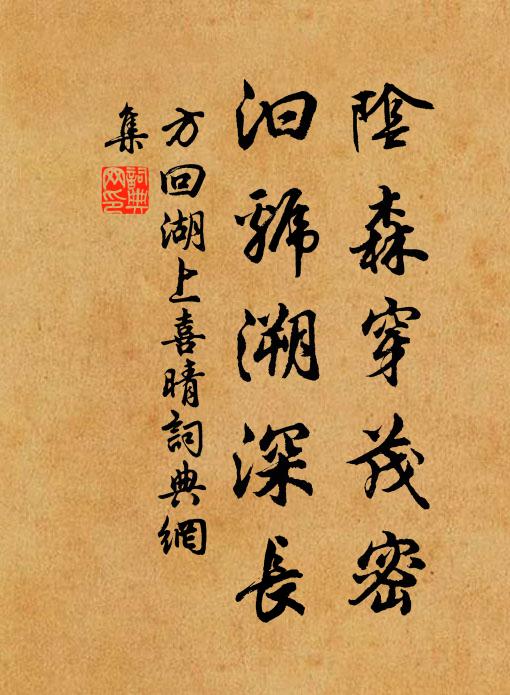 陰森穿茂密
汩溯深長
方回湖上喜晴詞典網
集
詞典網印